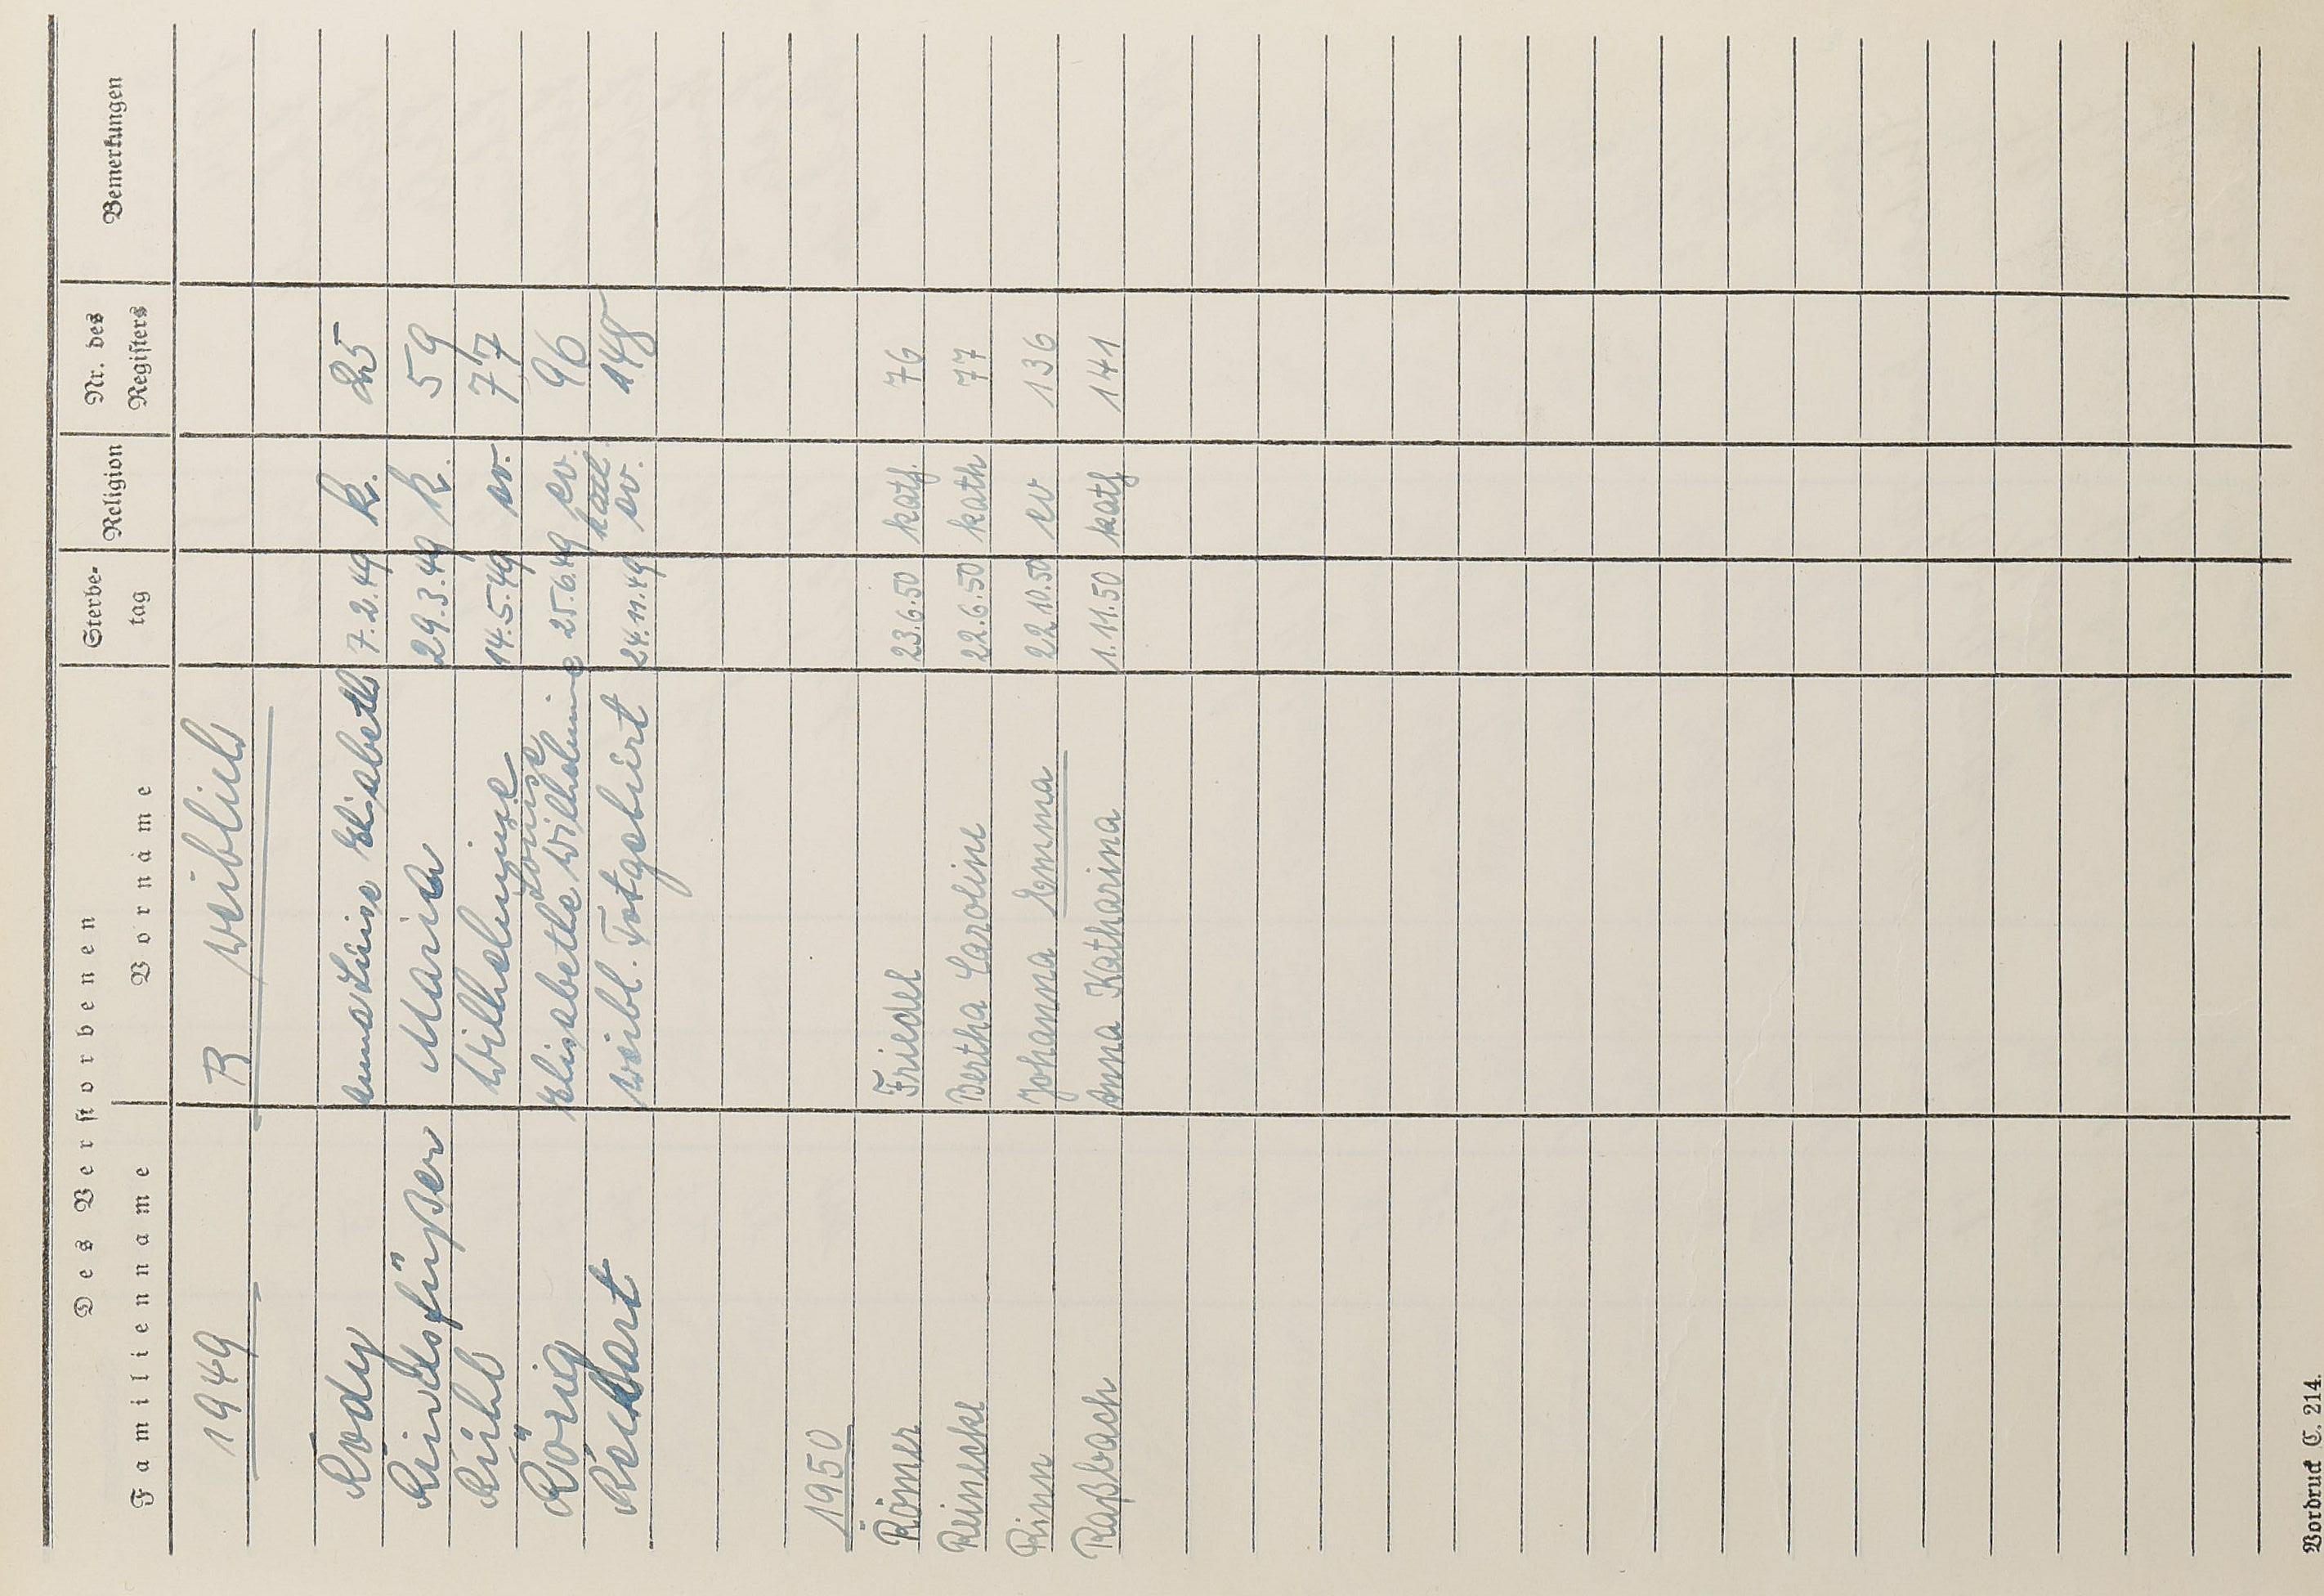 Des Verstorbenen
Familienname Vorname Sterbe-tag Religion Nr. des Registers Bemerkungen
1949 R weiblich
Rody Anna Luise Elisabeth 7.2.49 k. 25
Maria 29.3.49 k. 59
Rühl Wilhelmine 14.5.49 ev. 77
Luise
Rörig Elisabethe Wilhelmine 25.6.49 ev. 96
kath.
weibl. Totgeburt 24.11.49 ev. 148
1950
Römer Friedel 23.6.50 kath. 76
Reinecke Bertha Caroline 22.6.50 kath 77
Rinn Johanna Emma 22.10.50 ev 136
Raßbach Anna Katharina 1.11.50 kath 141
Vordruck C. 214.